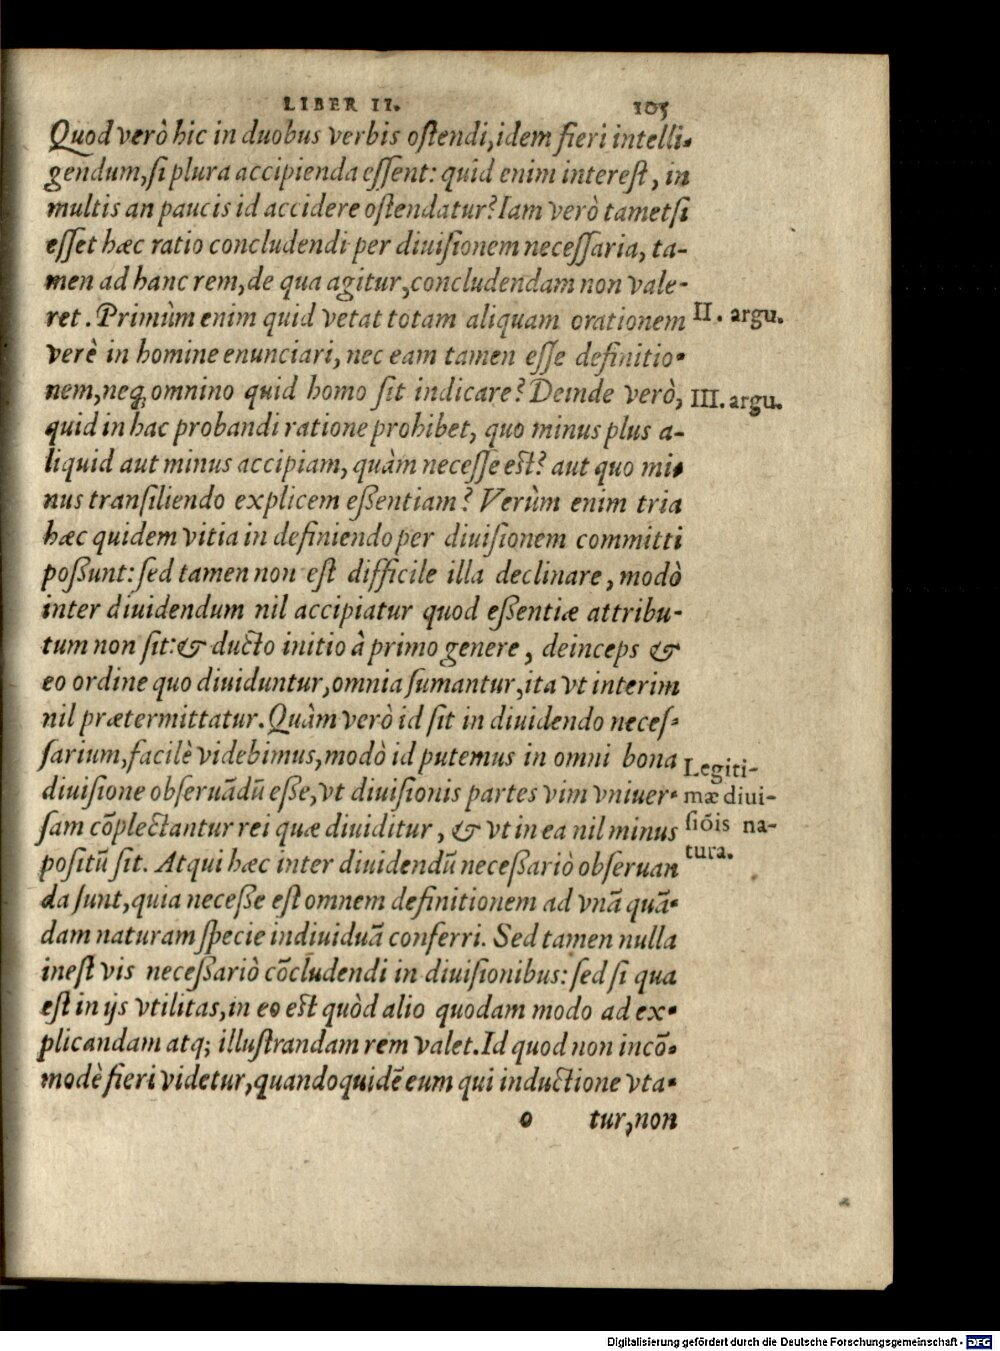 LIBER II. 105
Quod verò hic in duobus verbis ostendi, idem fieri intelli-
gendum, si plura accipienda essent: quid enim interest, in
multis an paucis id accidere ostendatur? Iam verò tametsi
esset hæc ratio concludendi per diuisionem necessaria, ta-
men ad hanc rem, de qua agitur, concludendam non vale-
ret. Primùm enim quid vetat totam aliquam orationem
II. argu.
verè in homine enunciari, nec eam tamen esse definitio-
nem, neq; omnino quid homo sit indicare? Deinde verò,
III. argu.
quid in hac probandi ratione prohibet, quo minus plus a-
liquid aut minus accipiam, quàm necesse est? aut quo mi-
nus transiliendo explicem eßentiam? Verùm enim tria
hæc quidem vitia in definiendo per diuisionem committi
poßunt: sed tamen non est difficile illa declinare, modò
inter diuidendum nil accipiatur quod eßentiæ attribu-
tum non sit: & ducto initio à primo genere, deinceps &
eo ordine quo diuiduntur, omnia sumantur, ita vt interim
nil prætermittatur. Quàm verò id sit in diuidendo neces-
sarium, facilè videbimus, modò id putemus in omni bona
diuisione obseruãdũ eße, vt diuisionis partes vim vniuer-
sam cõplectantur rei quæ diuiditur, & vt in ea nil minus
positũ sit. Atqui hæc inter diuidendũ neceßariò obseruan
Legiti-
mæ diui-
siõis na-
tura.
da sunt, quia neceße est omnem definitionem ad vnã quã-
dam naturam specie indiuiduã conferri. Sed tamen nulla
inest vis neceßariò cõcludendi in diuisionibus: sed si qua
est in ijs vtilitas, in eo est quòd alio quodam modo ad ex-
plicandam atq; illustrandam rem valet. Id quod non incõ-
modè fieri videtur, quandoquidẽ eum qui inductione vta-
o tur, non
Digitalisierung gefördert durch die Deutsche Forschungsgemeinschaft - DFG